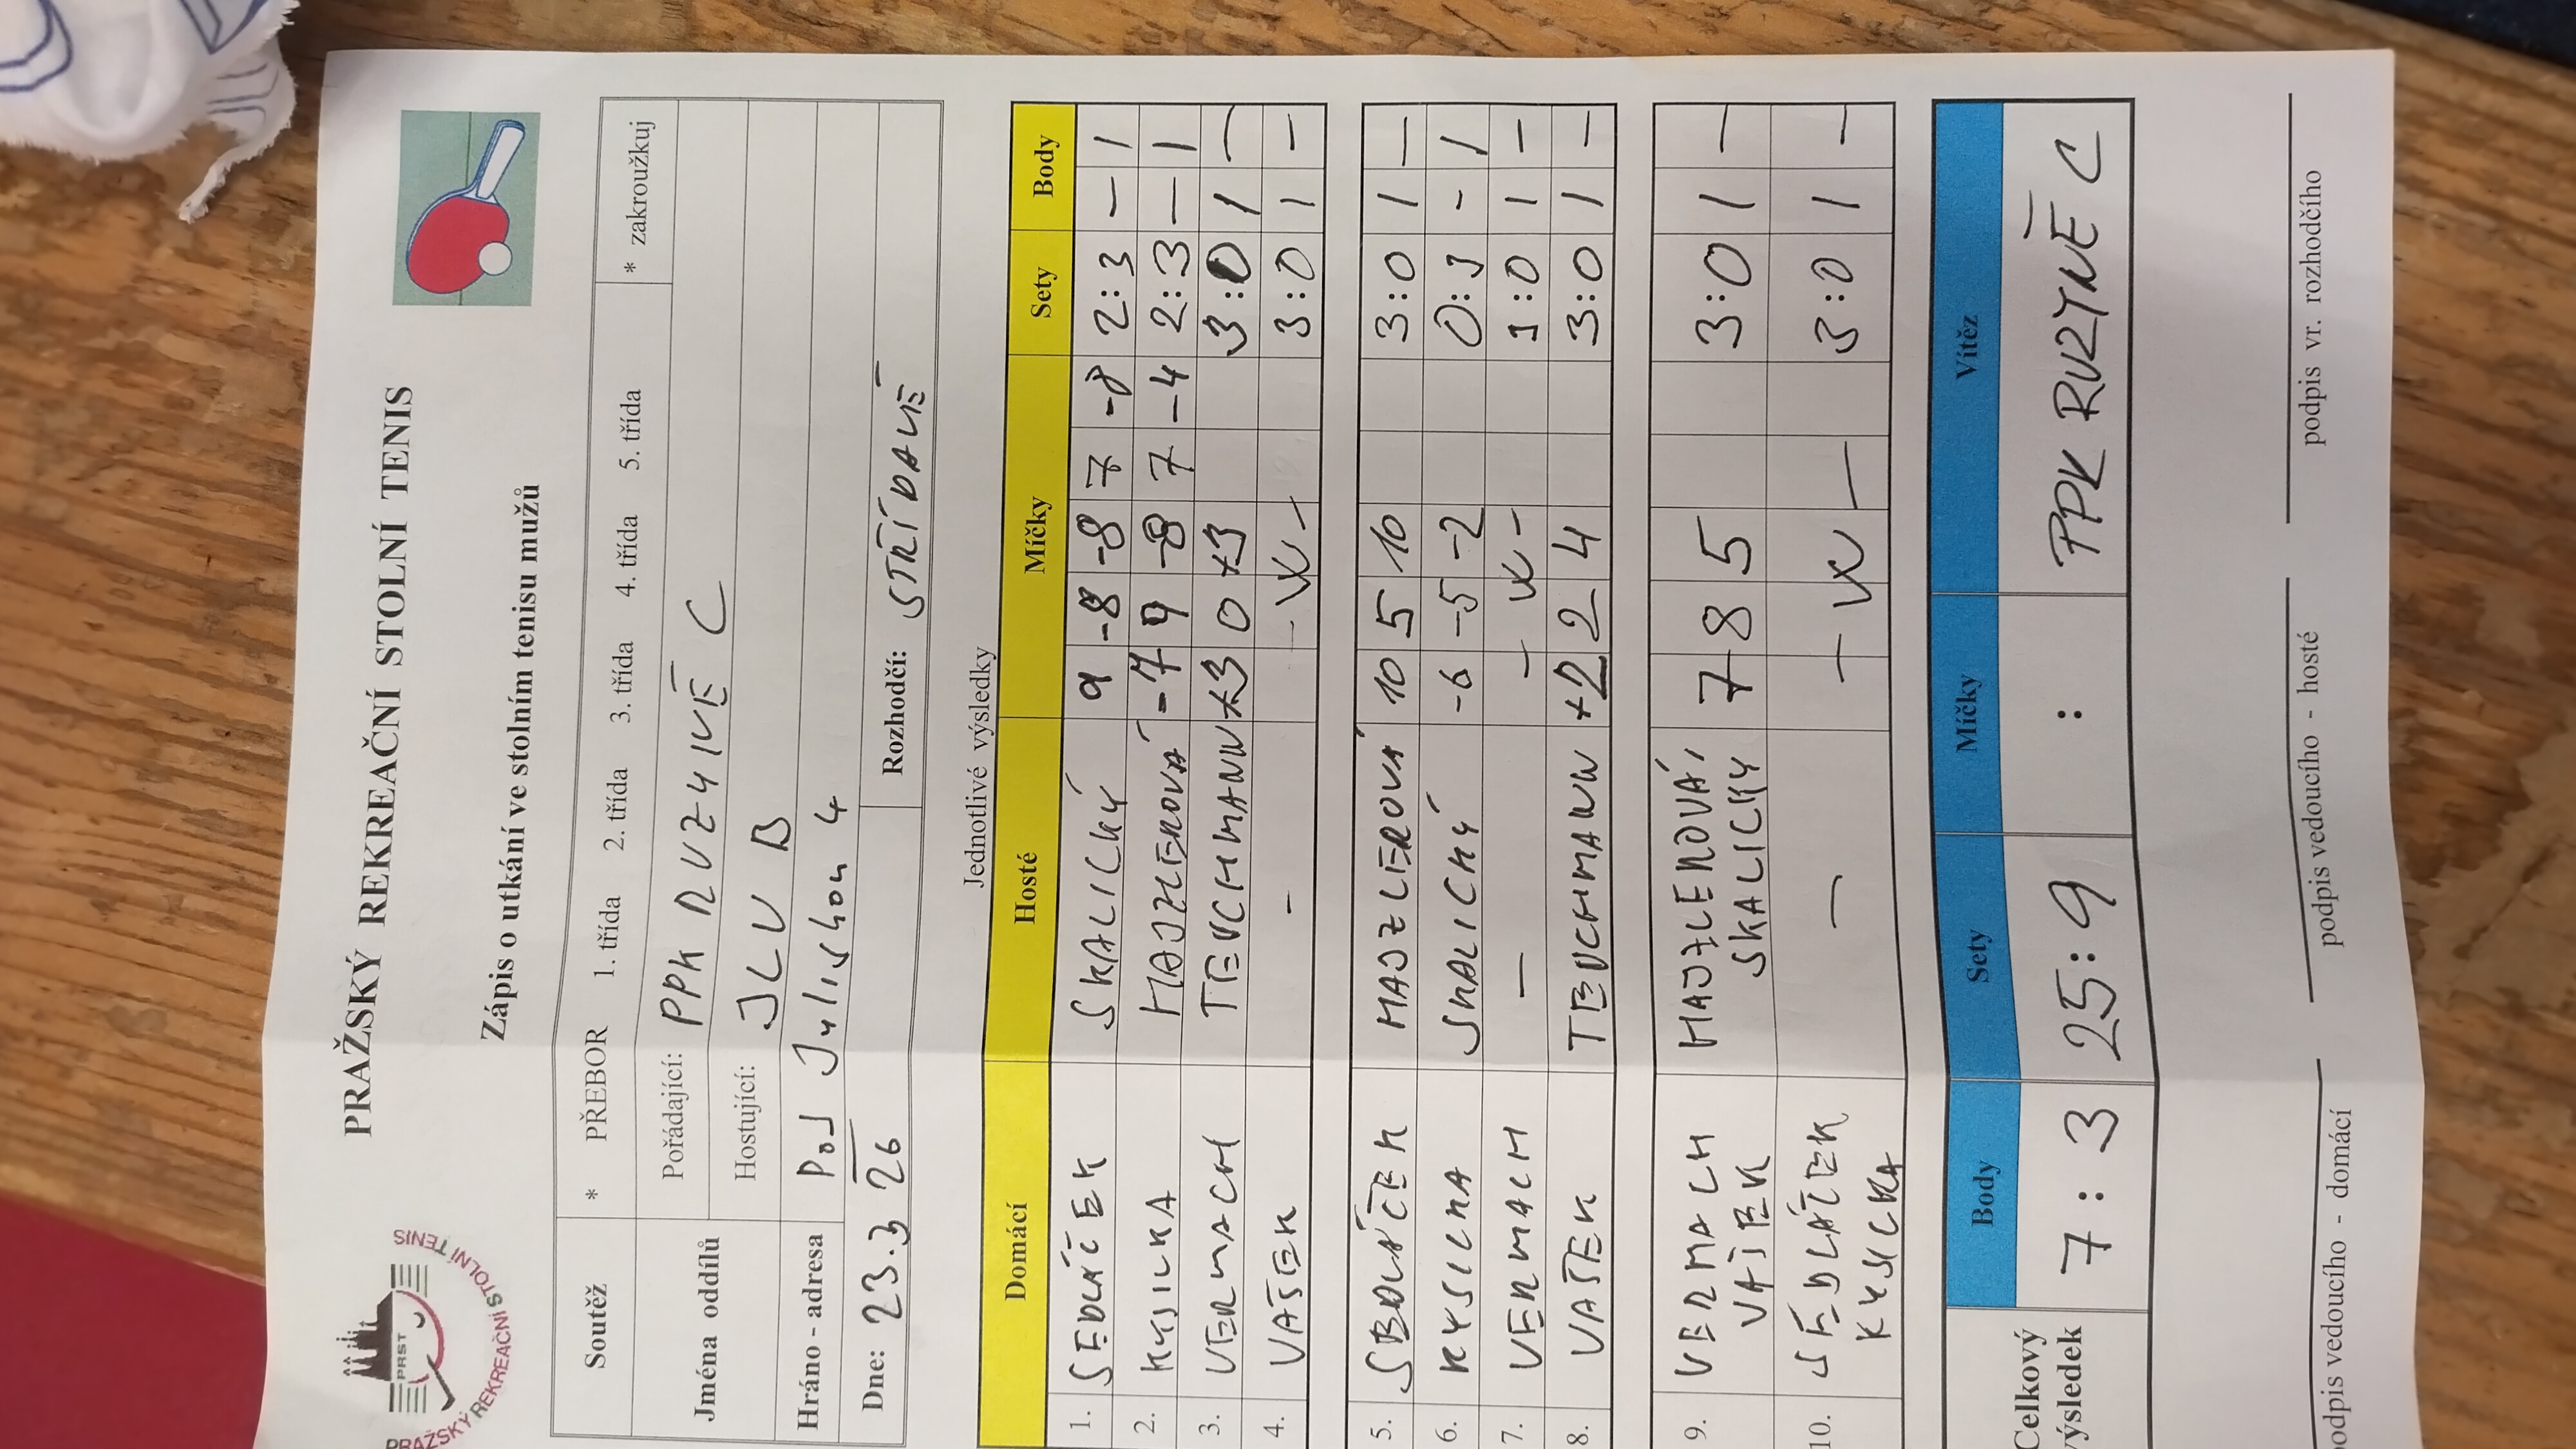 PRAŽSKÝ REKREAČNÍ STOLNÍ TENIS
PRST
PRAŽSKÝ REKREAČNÍ STOLNÍ TENIS
Zápis o utkání ve stolním tenisu mužů
Soutěž * PŘEBOR 1. třída 2. třída 3. třída 4. třída 5. třída * zakroužkuj
Jména oddílů Pořádající: PPK RUZYNĚ C
Hostující: JLV B
Hráno - adresa Pod Juliskou 4
Dne: 23.3 26 Rozhodčí: STŘÍDAVĚ
Jednotlivé výsledky
Domácí Hosté Míčky Sety Body
1. SEDLÁČEK SKALICKÝ 9 -8 -8 7 -8 2:3 – 1
2. KYSILKA HAJZLEROVÁ -7 9 -8 7 -4 2:3 – 1
3. VERMACH TEUCHMANN 3 0 3 3:0 1 –
4. VAŠEK - - W - 3:0 1 –
5. SEDLÁČEK HAJZLEROVÁ 10 5 10 3:0 1 –
6. KYSILKA SKALICKÝ -6 -5 -2 0:3 - 1
7. VERMACH – - W - 3:0 1 –
8. VAŠEK TEUCHMANN +2 2 4 3:0 1 –
9. VERMACH HAJZLEROVÁ, 7 8 5 3:0 1 –
VAŠEK SKALICKÝ
10. SEDLÁČEK – – W – 3:0 1 –
KYSILKA
Body Sety Míčky Vítěz
Celkový výsledek 7 : 3 25:9 : PPK RUZYNĚ C
podpis vedoucího - domácí podpis vedoucího - hosté podpis vr. rozhodčího